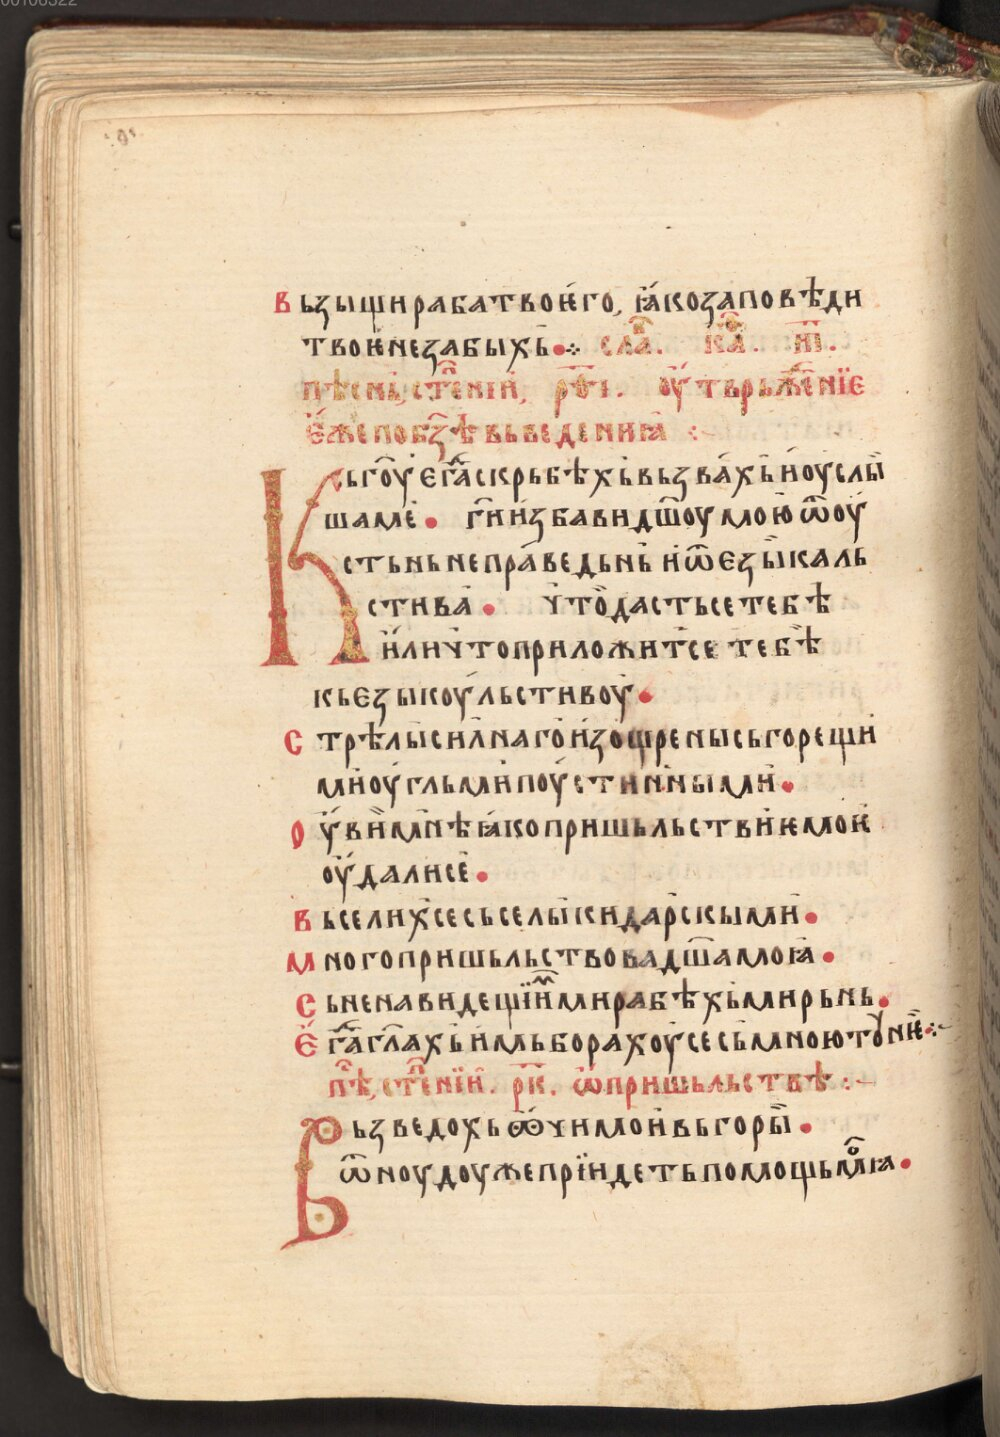 00106322
·ѳ·
вьзыщи раба твоѥ́го, ꙗ́ко заповѣди
твоѥ не забыхь҆ ⁘ сла҆в. ка҆ѳ. н҃і.
пѣснь, сте҆пенін, р҃ѳі. оу҆тврьж҆еніе
е҆же по бз҃ѣ вьведенига :~
Кь го҃у є҆гⷣа скрьбѣхь҆ вьзва́хь҆ и҆ оу҆слы҆
ша ме҆ • г҃и и҆збави д҃шоу мою҆ ѿ оу҆
стьнь непра́ведьнь҆ и҆ ѿ єзы҆ка ль
стива҆ • что҆ дасть се тебѣ
и҆ли что приложит҆се тебѣ
кь єзыкоу҆ льстивоу҆ •
Стрѣлы҆ сил҆наго҆ и҆зо҆щрены сь горещи҆
ми҆ оу҆гльми҆ поу҆стин҆ными҆ •
Оу҆ви҆ м҆нѣ ꙗ҆ко пришьльствиѥ҆ моѥ҆
оу҆дали се҆ •
Вьселих҆ се сь селы҆ кидар҆скыми •
Много пришьльствова д҃ша моꙗ҆ •
Сь ненавидещіи҆мⷨи мира бѣхь҆ мирьнь •
Є҆гⷣа гл҃ахь҆ и҆мь борахоу҆ се сь҆ мною тоуне҆ ⁘~
пⷭѣ, сте҆пенїи. р҃к. ѡ҆ пришьльствѣ :~
Вьзведохь ѻ҆чи мои҆ вь горы҆ •
ѿноудоуже прїидеть помощь моꙗ҆ •